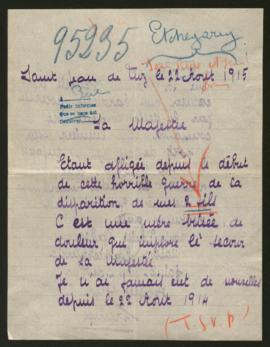 95235
Etchegaray
Saint jean de Luz le 22 Aout 1915
Sa Majestée
Etant affligée depuis le début
de cette horrible guerre de la
disparition de mes 2 fils
C est une mère brisée de
douleur qui implore le secour
de Sa Majesté
Je n ai jamait eut de nouvelles
depuis le 22 Aout 1914
(T.S.V.P)